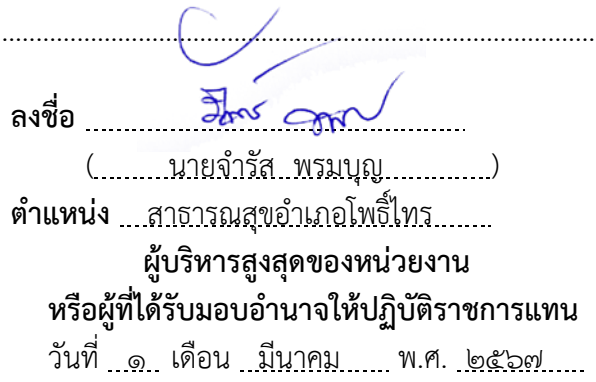 ลงชื่อ
( นายจำรัส พรมบุญ )
ตำแหน่ง สาธารณสุขอำเภอโพธิ์ไทร
ผู้บริหารสูงสุดของหน่วยงาน
หรือผู้ที่ได้รับมอบอำนาจให้ปฏิบัติราชการแทน
วันที่ ๑ เดือน มีนาคม พ.ศ. ๒๕๖๗